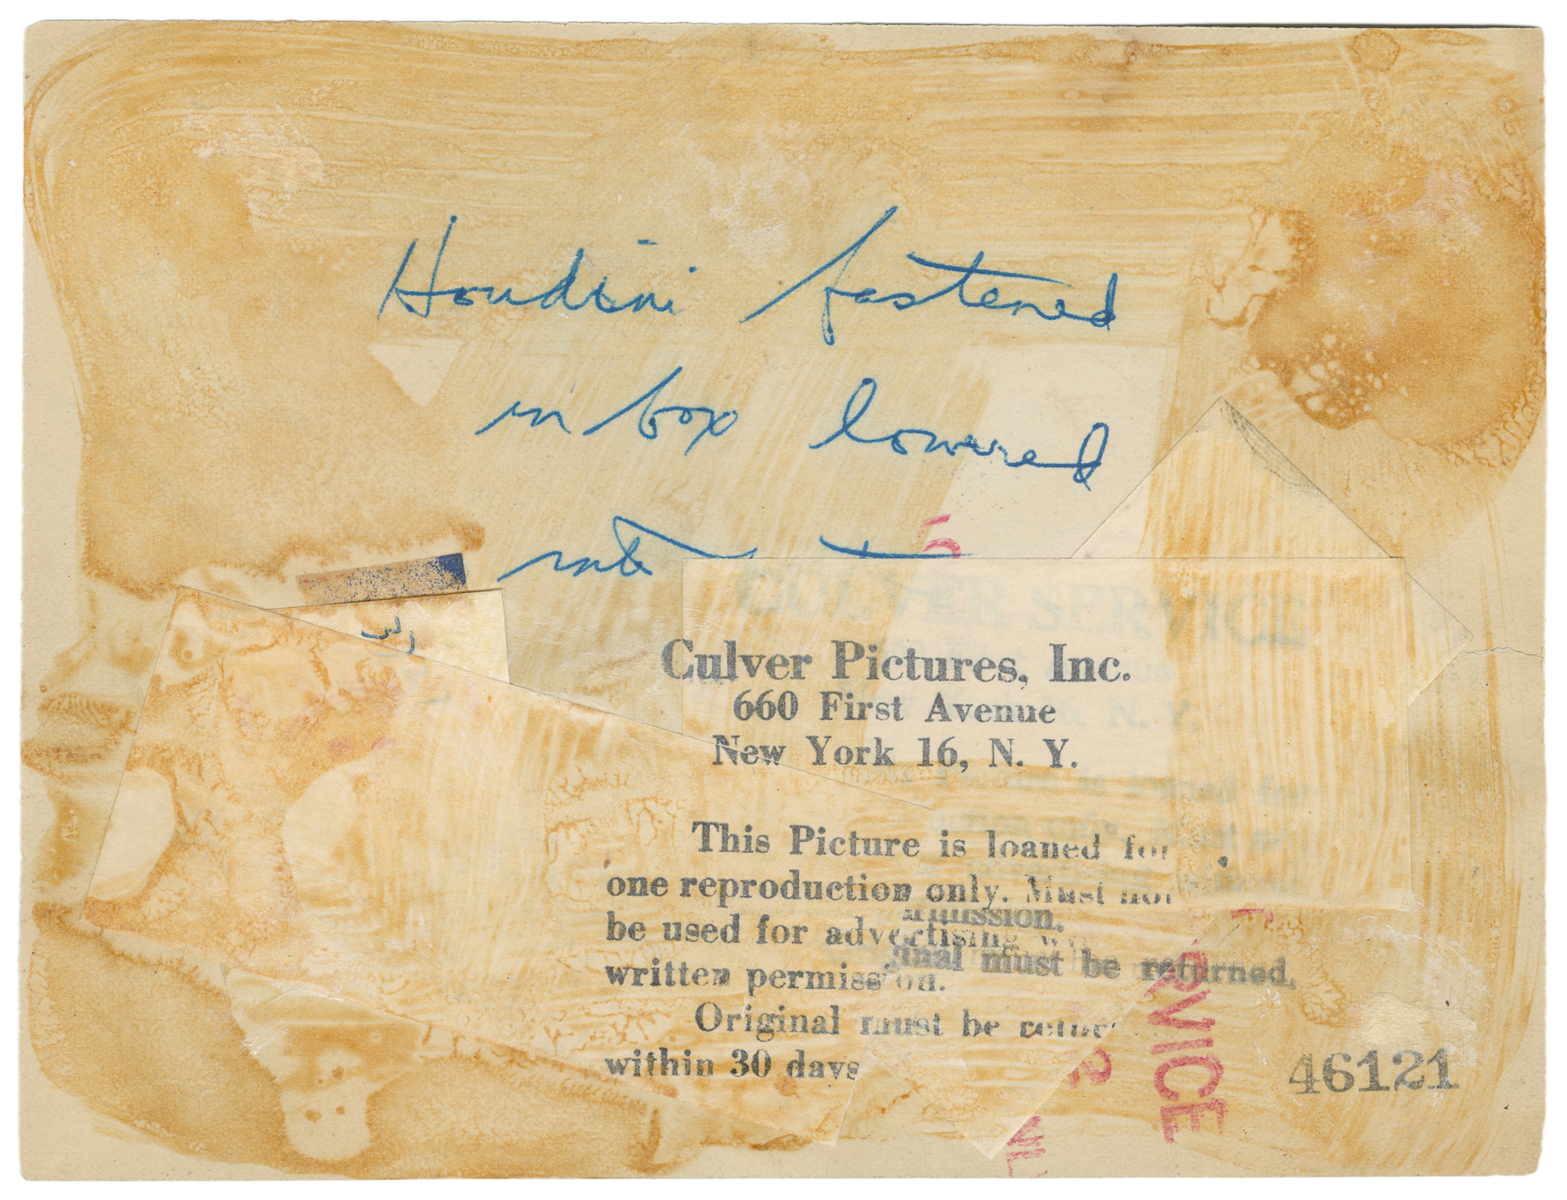 Houdini fastened
in box lowered
into
CULVER SERVICE
Culver Pictures, Inc.
660 First Avenue
N. Y.
New York 16, N. Y.
This Picture is loaned for
one reproduction only. Must not
be used for advertising
written permission.
must be returned.
Original must be
within 30 days
RVICE
46121